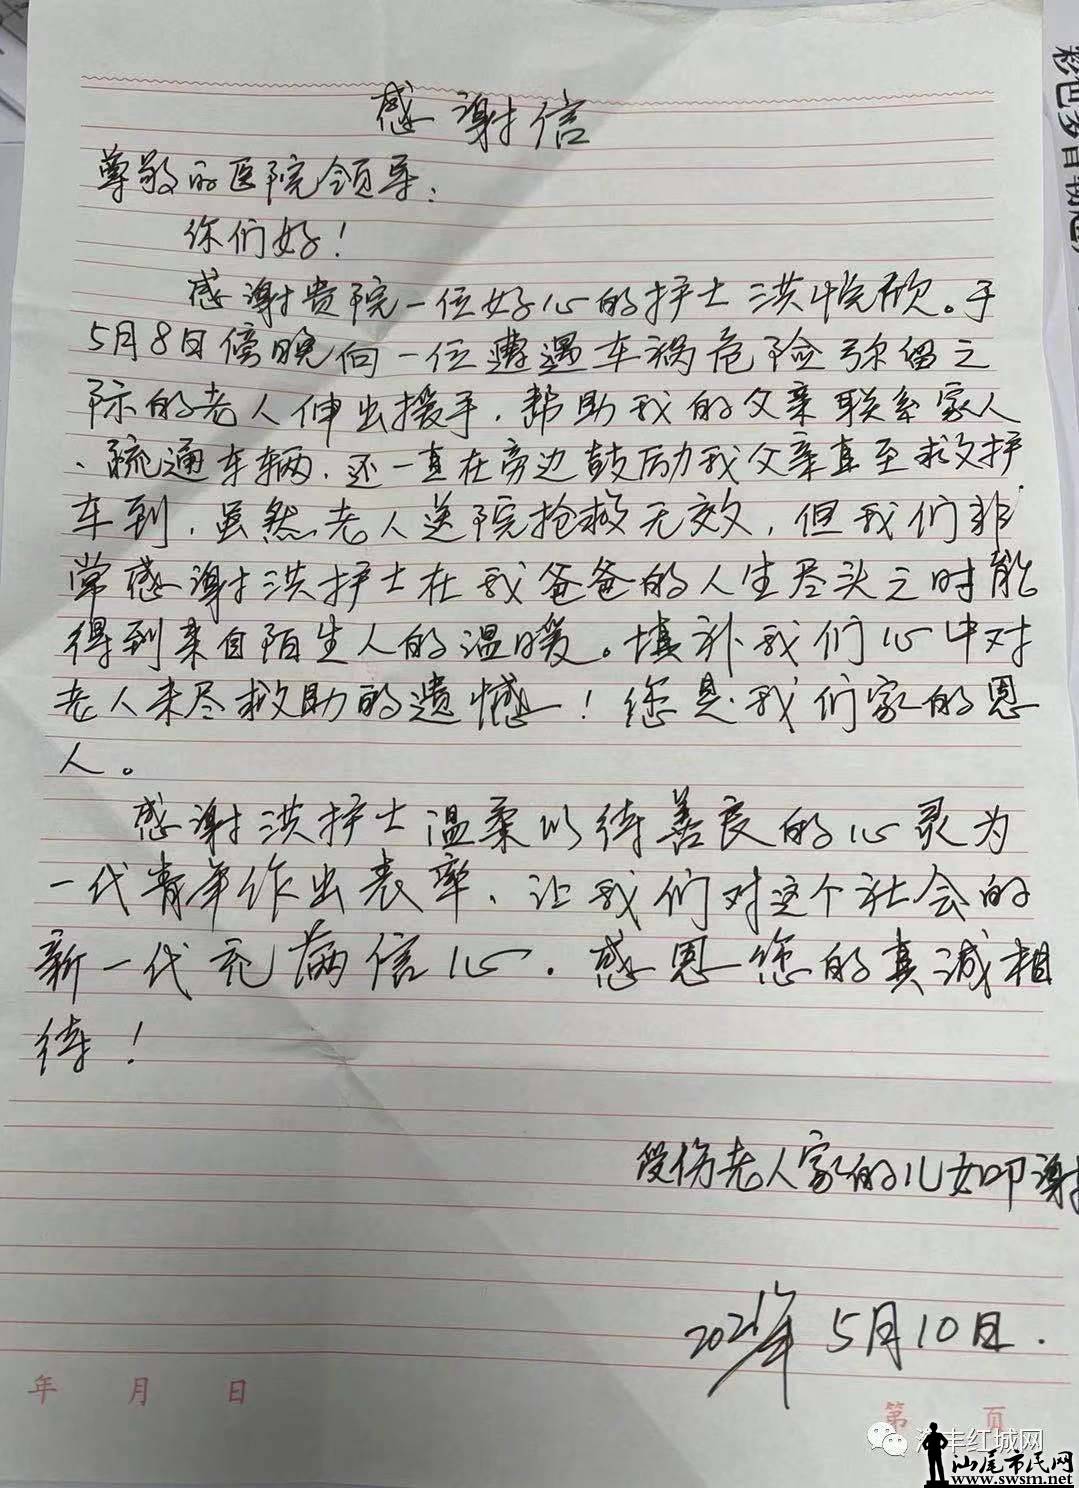 感谢信
尊敬的医院领导：
你们好！
感谢贵院一位好心的护士洪悦欣。于
5月8日傍晚向一位遭遇车祸危险弥留之
际的老人伸出援手，帮助我的父亲联系家人
、疏通车辆，还一直在旁边鼓励我父亲直至救护
车到，虽然老人送院抢救无效，但我们非
常感谢洪护士在我爸爸的人生尽头之时能
得到来自陌生人的温暖。填补我们心中对
老人未尽救助的遗憾！您是我们家的恩
人。
感谢洪护士温柔以待善良的心灵为
一代青年作出表率、让我们对这个社会的
新一代充满信心。感恩您的真诚相
待！
受伤老人家的儿女叩谢
2021年5月10日.
年 月 日
第 页
丰红城网
汕尾市民网
www.swsm.net